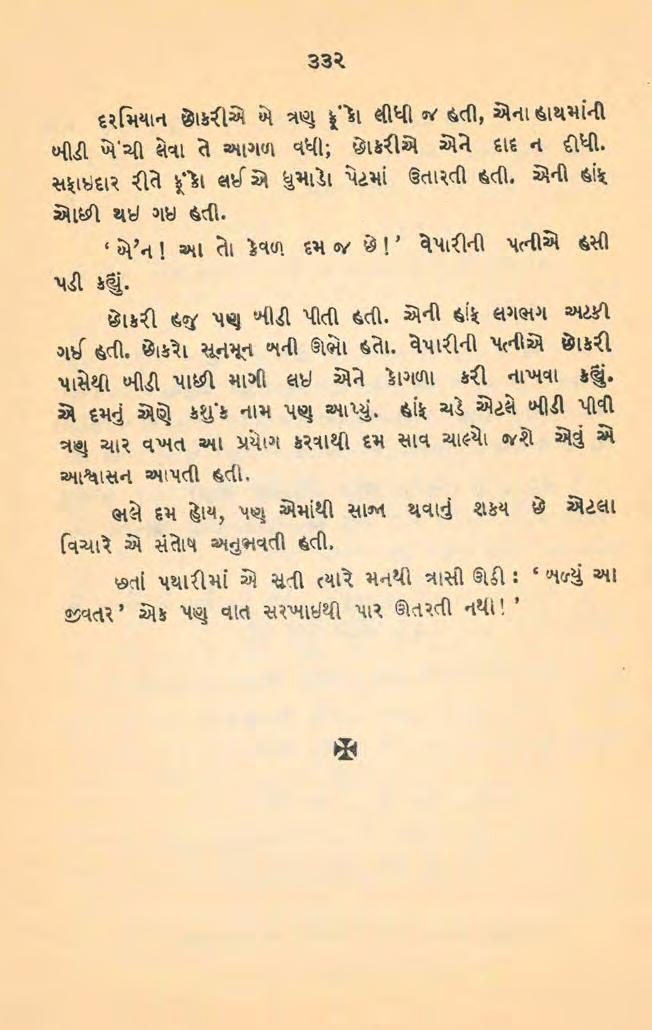 ૩૩૨
દરમિયાન છોકરીએ બે ત્રણ ફૂંકો લીધી જ હતી, એના હાથમાંની
બીડી ખેંચી લેવા તે આગળ વધી; છોકરીએ એને દાદ ન દીધી.
સફાઇદાર રીતે ફૂંકો લઈ એ ધુમાડો પેટમાં ઉતારતી હતી. એની હાંફ
ઓછી થઇ ગઇ હતી.
‘ બે’ન ! આ તો કેવળ દમ જ છે ! ’ વેપારીની પત્નીએ હસી
પડી કહ્યું.
છોકરી હજુ પણ બીડી પીતી હતી. એની હાંફ લગભગ અટકી
ગઈ હતી. છોકરો સૂનમૂન બની ઊભો હતો. વેપારીની પત્નીએ છોકરી
પાસેથી બીડી પાછી માગી લઇ એને કોગળા કરી નાખવા કહ્યું.
એ દમનું એણે કશુંક નામ પણ આપ્યું. હાંફ ચડે એટલે બીડી પીવી
ત્રણ ચાર વખત આ પ્રયોગ કરવાથી દમ સાવ ચાલ્યો જશે એવું એ
આશ્વાસન આપતી હતી.
ભલે દમ હોય, પણ એમાંથી સાજા થવાનું શકય છે એટલા
વિચારે એ સંતોષ અનુભવતી હતી.
છતાં પથારીમાં એ સૂતી ત્યારે મનથી ત્રાસી ઊઠી : ‘ બળ્યું આ
જીવતર ’ એક પણ વાત સરખાઇથી પાર ઊતરતી નથી! ’